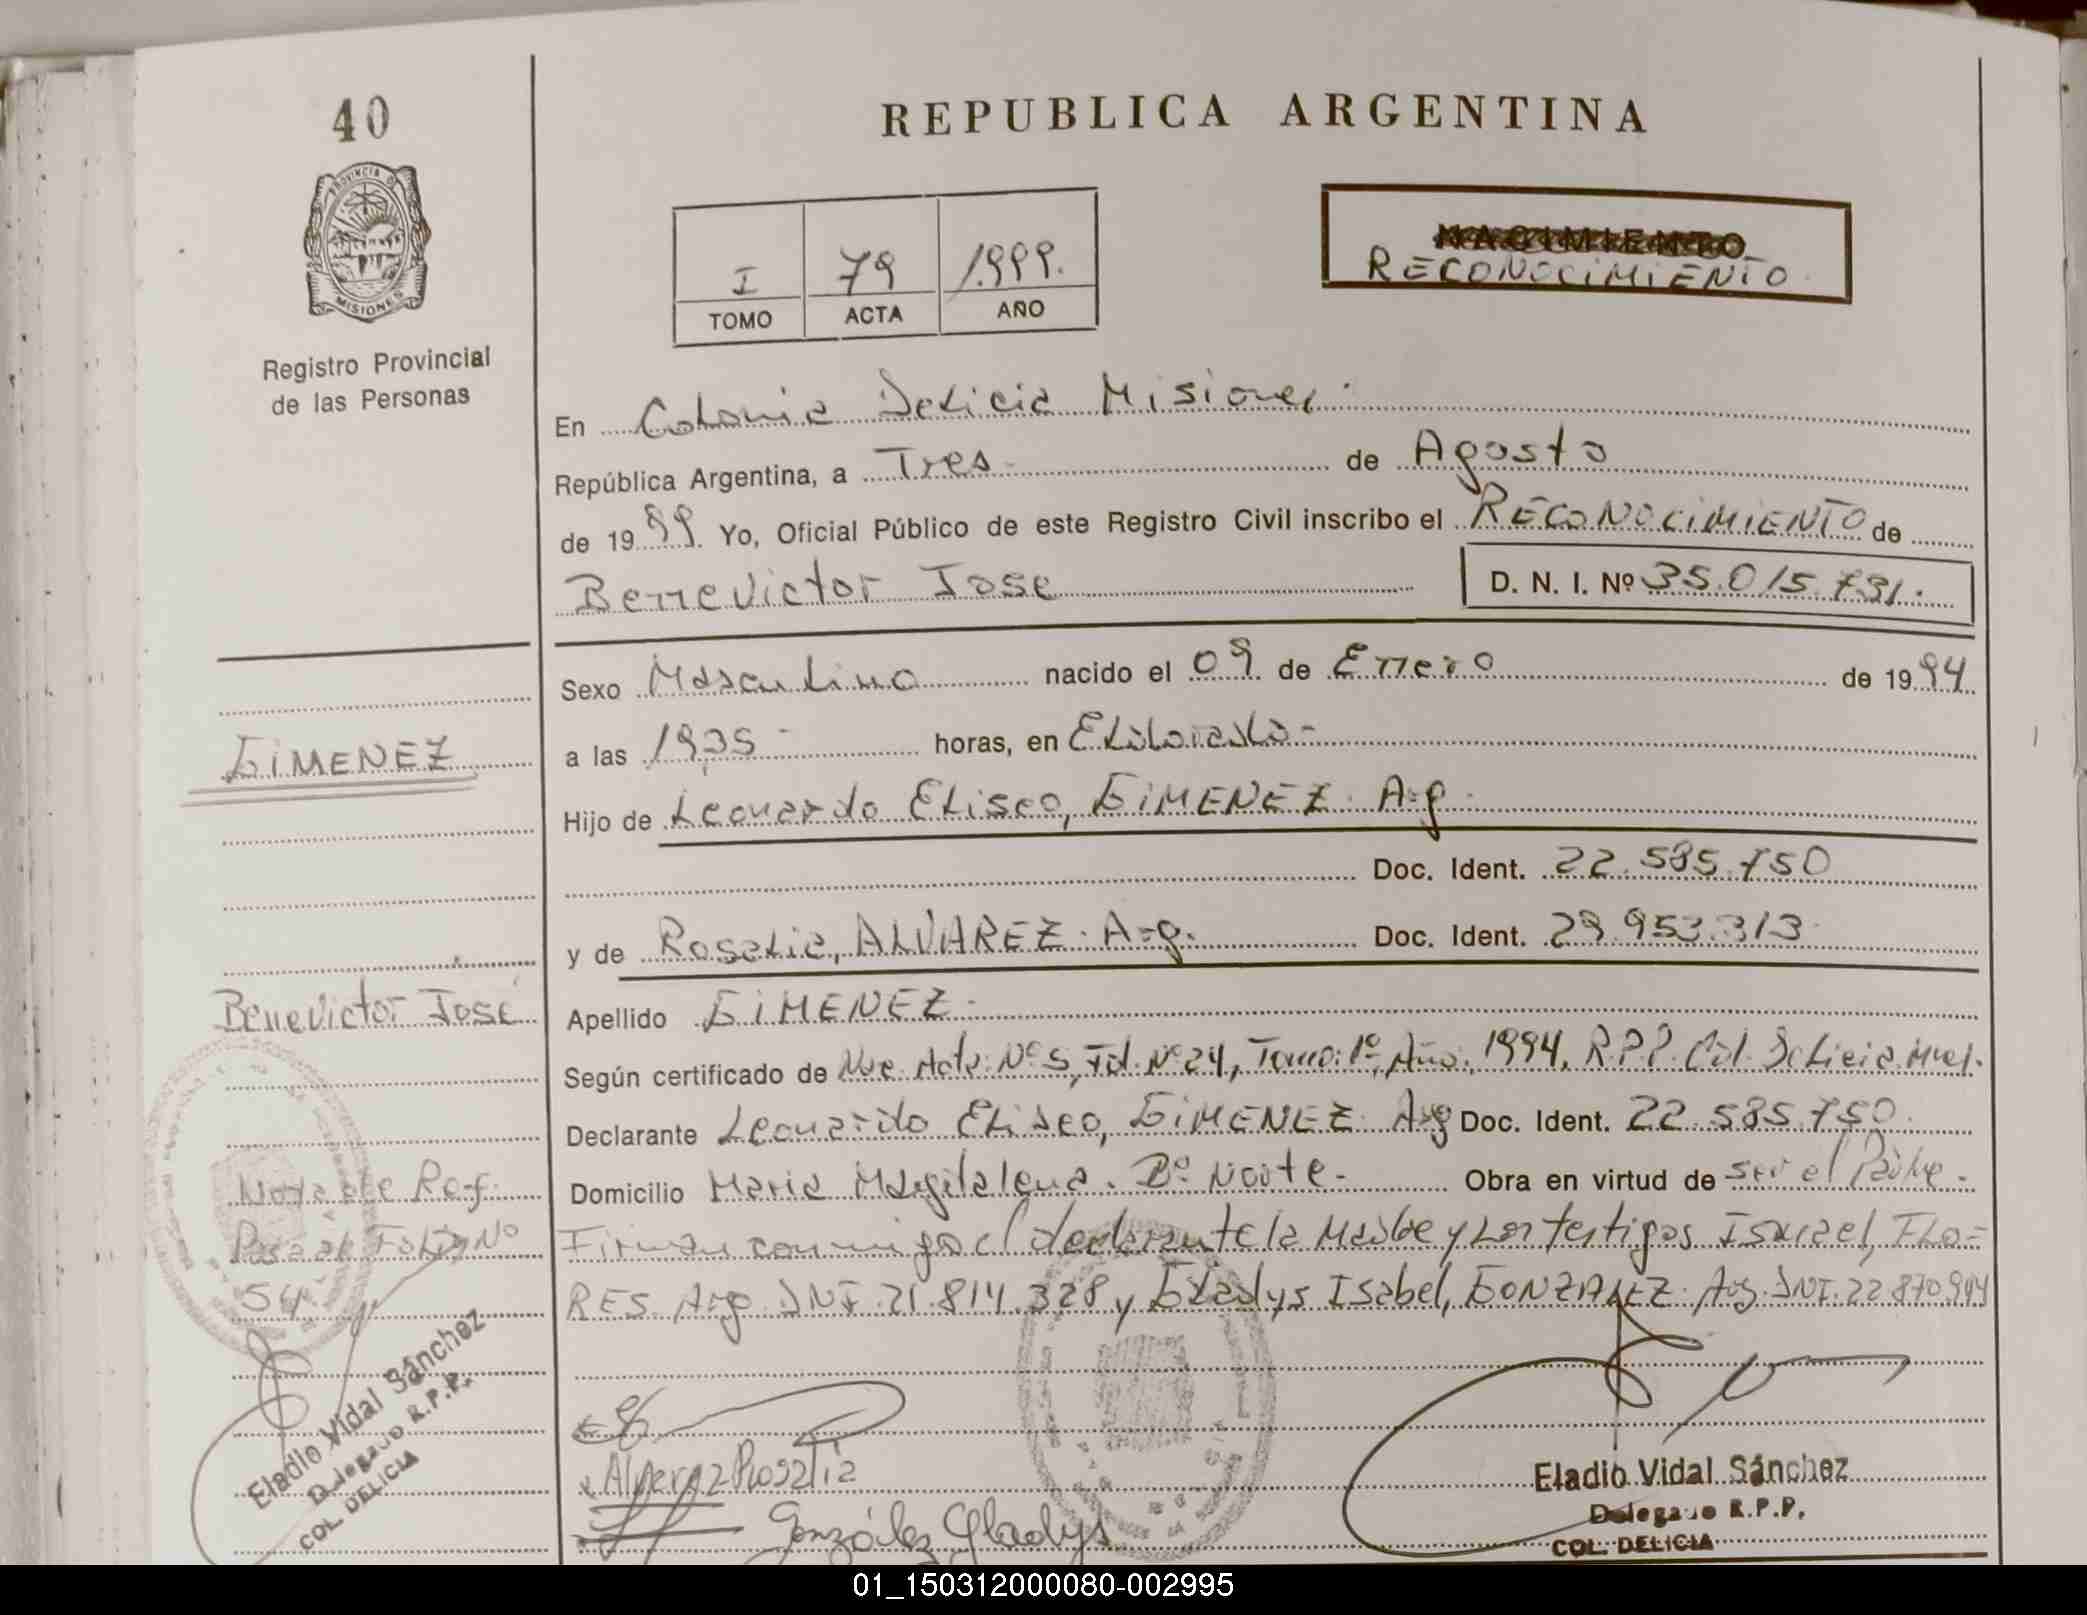 40
REPUBLICA ARGENTINA
PROVINCIA DE
MISIONES
Registro Provincial
de las Personas
I 79 1.999.
TOMO ACTA AÑO
NACIMIENTO
RECONOCIMIENTO
En Colonia Delicia Misiones.
República Argentina, a Tres - de Agosto
de 19 99. Yo, Oficial Público de este Registro Civil inscribo el RECONOCIMIENTO de
Benevictor Jose D. N. I. Nº 35.015.731.
Sexo Masculino nacido el 09. de Enero de 19 94
a las 19,35 - horas, en Eldorado -
GIMENEZ
Hijo de Leonardo Eliseo, GIMENEZ. Arg.
Doc. Ident. 22.585.750
y de Rosalia, ALVAREZ. Arg. Doc. Ident. 29.953.313
Benevictor José
Apellido GIMENEZ.
Según certificado de Acta. Nº 5, Fol. Nº 24, Tomo: 1º, Año: 1994, R.P.P. Col. Delicia
Declarante Leonardo Eliseo, GIMENEZ. Arg Doc. Ident. 22.585.750.
Domicilio Maria Magdalena. Bº Norte - Obra en virtud de ser el Padre -
Nota de Ref.
Pasa al Folio Nº
54
Firman conmigo el declarante la Madre y los testigos Israel, FLO=
RES. Arg. DNI. 21.814.328 y Gladys Isabel, GONZALEZ. Arg. DNI. 22.870.944
Eladio Vidal Sánchez
Delegado R.P.P.
COL. DELICIA
Alverez Rosalia
González Gladys
Eladio Vidal Sánchez
Delegado R.P.P.
COL. DELICIA
01_150312000080-002995